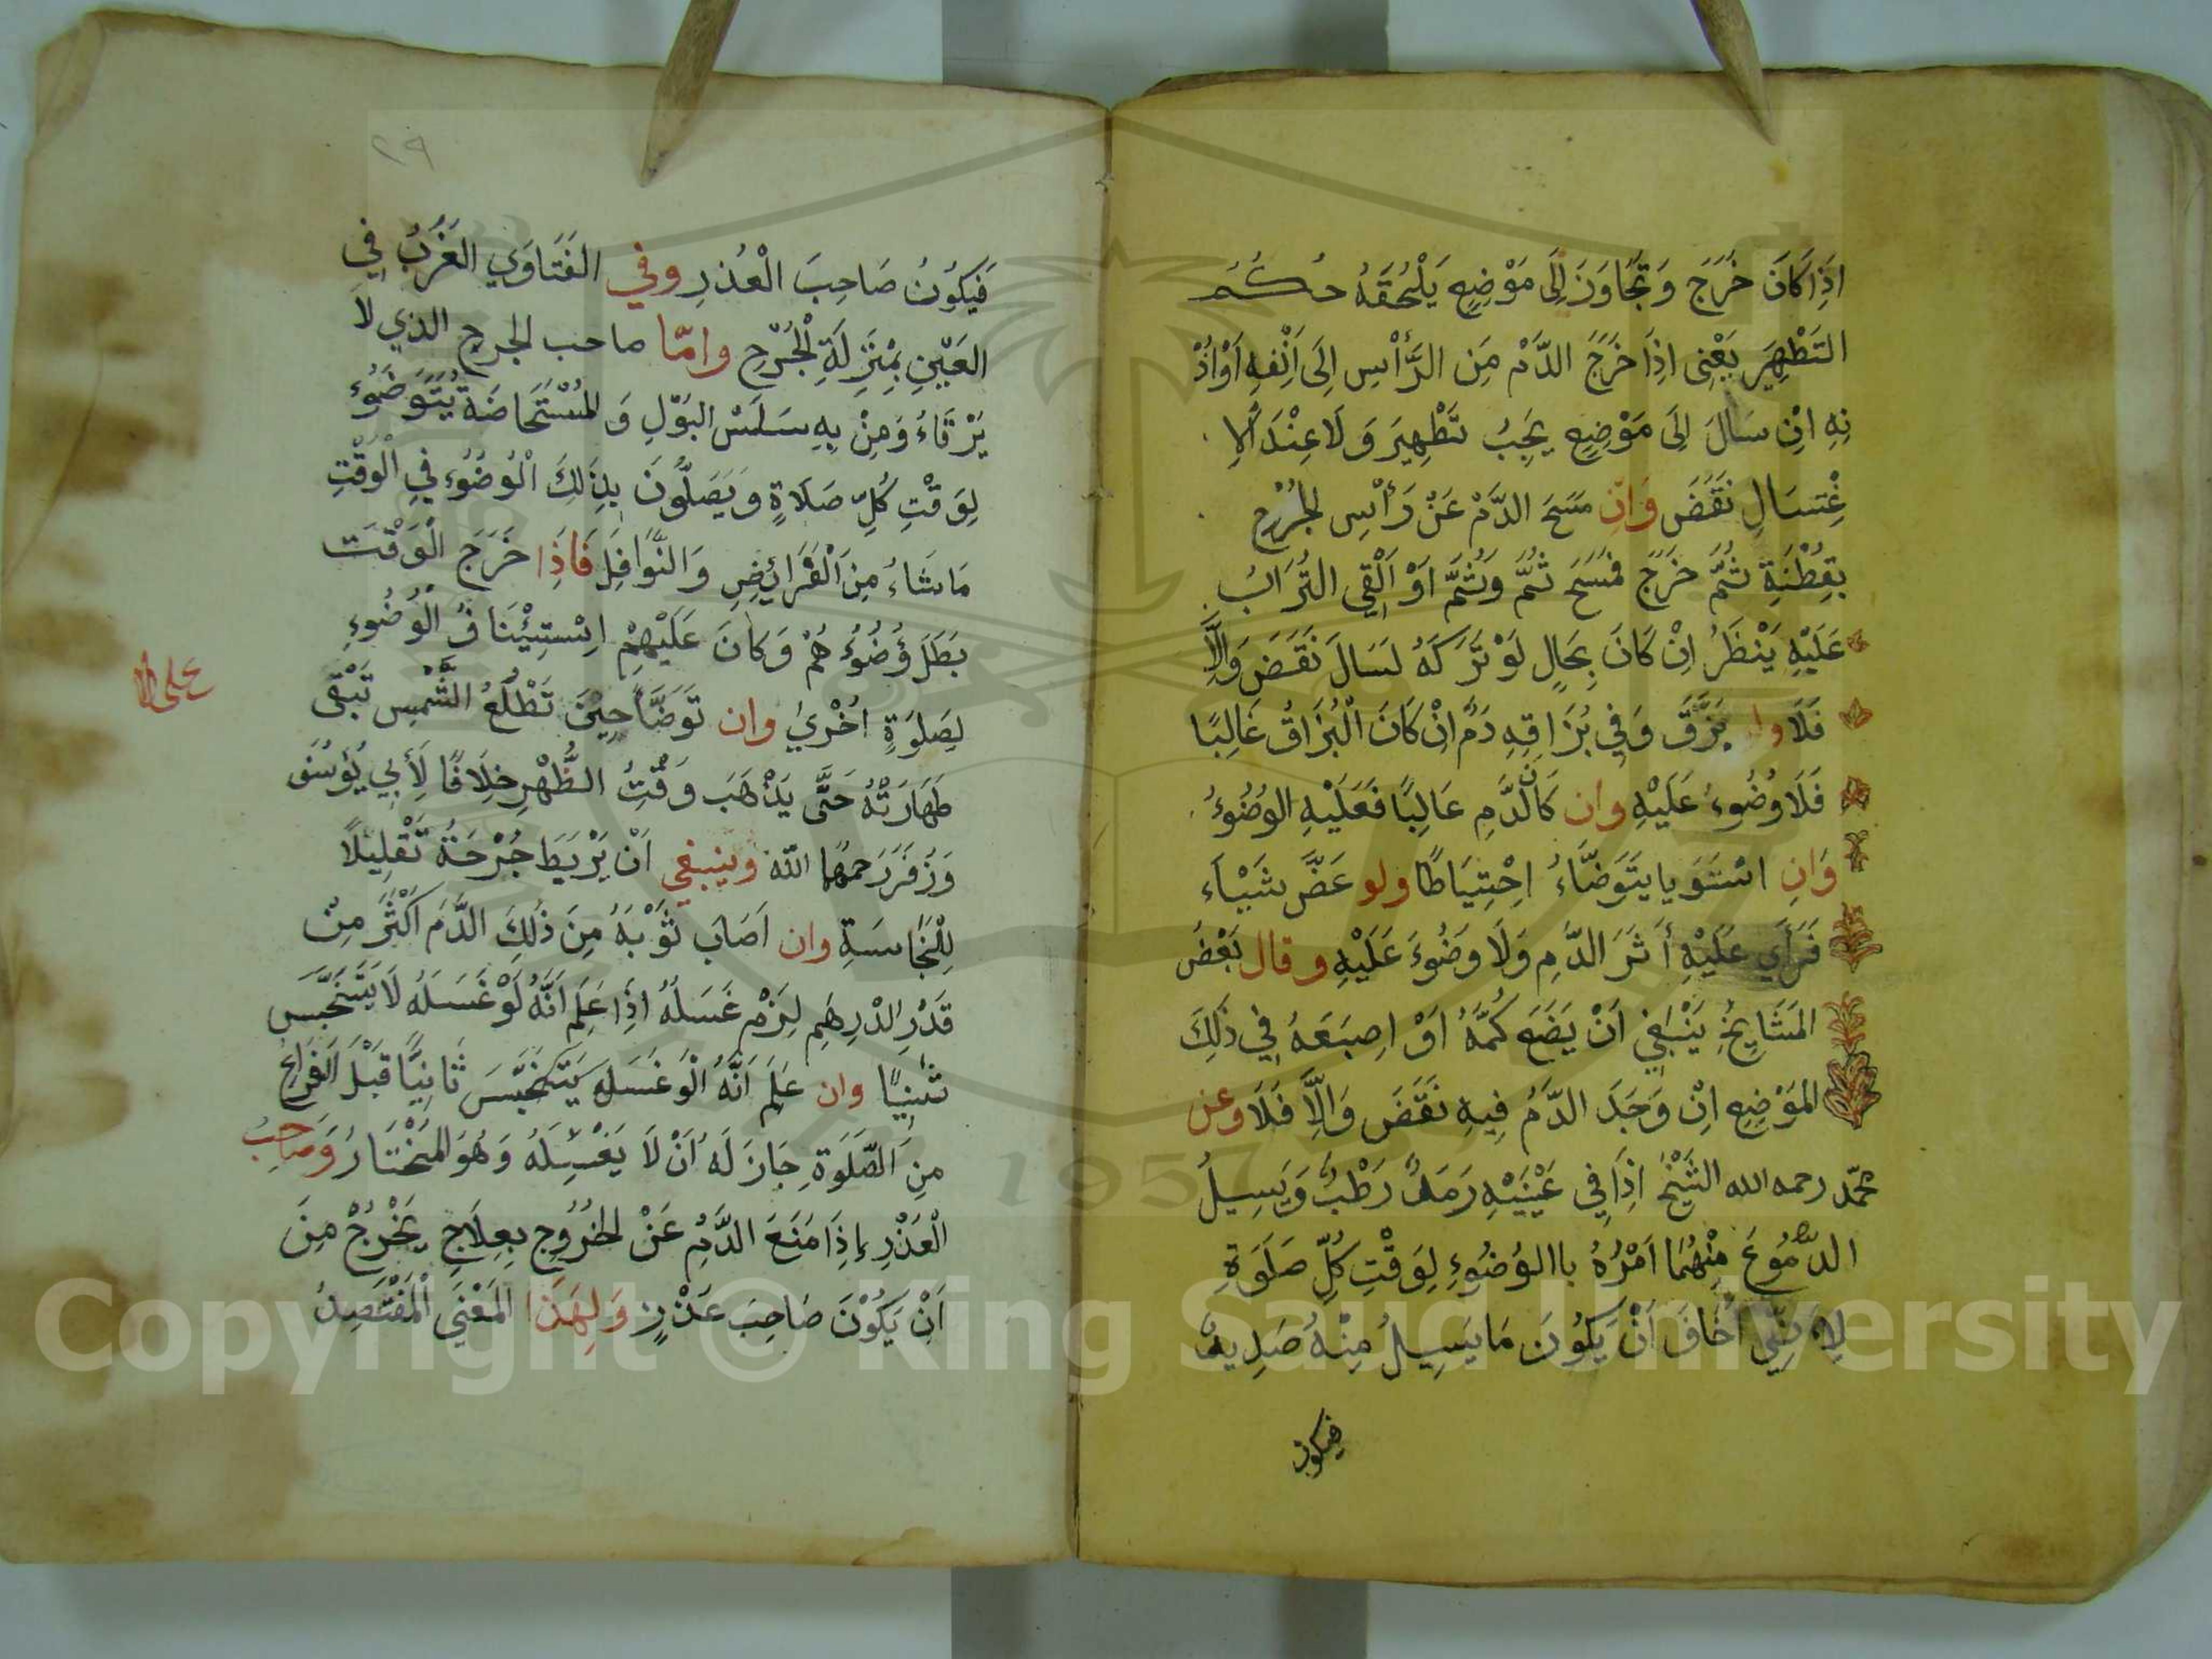 اِذَا كَانَ خَرَجَ وَتَجَاوَزَ اِلَى مَوْضِعٍ يَلْحَقُهُ حُكْمُ
التَطْهِيرِ يَعْنِي اِذَا خَرَجَ الدَّمُ مِنَ الرَّأْسِ اِلَى اَنْفِهِ اَوْ اُذُ
نِهِ اِنْ سَالَ اِلَى مَوْضِعٍ يَجِبُ تَطْهِيرَ وَلَا عِنْدَ الاِ
غْتِسَالِ نَقَضَ وَاِنْ مَسَحَ الدَّمَ عَنْ رَأْسِ الجُرْحِ
بِقُطْنَةِ ثُمَّ خَرَجَ فَمَسَحَ ثُمَّ وَثُمَّ اَوْ اَلْقِي التُرَابُ
عَلَيْهِ يَنْظَرُ اِنْ كَانَ بِحَالٍ لَوْ تَرَكَهُ لَسَالَ نَقَضَ وَاِلَّا
فَلَا وان بَزَقَ وَفِي بُزَاقِهِ دَمٌ اِنْ كَانَ الْبُزَاقُ غَالِبًا
فَلَا وُضُوءَ عَلَيْهِ وان كَانَ الدَّمِ غَالِبًا فَعَلَيْهِ الوُضُوءُ
وَاِنِ اسْتَوَيا يَتَوَضَّاءُ اِحْتِيَاطًا ولو عَضَّ شَيْاءَ
فَرَأَي عَلَيْهِ أَثَرَ الدَّمِ وَلَا وضُوءَ عَلَيْهِ وقال بَعْضُ
المَشَايِخِ يَنْبَغِي اَنْ يَضَعَ كُمَّهُ اَوْ اِصبَعَهُ فِي ذَلِكَ
المَوْضِعِ اِنْ وَجَدَ الدَّمُ فِيهِ نَقَضَ وَاِلَّا فَلَا وعن
محمّد رحمه الله الشَيْخُ اِذَا فِي عَيْنَيْهِ رَمَدٌ رَطْبٌ وَيَسِيلُ
الدُّمُوعَ مِنْهُمَا اَمْرُهُ باالوُضُوءِ لِوَقْتِ كُلِّ صَلَوَةِ
لِاَنِّي اَخَافَ اَنْ يَكُونَ مَا يَسِيلُ مِنْهُ صَدِيدٌ
فيكون
٢٩
فَيَكُونُ صَاحِبَ الْعُذرِ وفي الفَتَاوَي الغَرَبُ فِي
العَيْنِ بِمَنْزِلَةِ الْجُرْحِ وامّا صاحب الجرح الذي لا
يَرْقَاءُ وَمِنْ بِهِ سَلَسُ البَوْلِ وَ المُسْتَحَاضَةُ يَتَوَضَوُء
لِوَقْتِ كُلِّ صَلَاةٍ وَيَصَلُّونَ بِذَلِكَ الْوُضُوُءِ فِي الْوَقْتِ
مَا شَاءُ مِنَ الْفَرَائِضِ وَالنَّوَافِلِ فَاذَا خَرَجَ الْوَقْتَ
بَطَلَ وُضُوُءُ هُمْ وَكَانَ عَلَيْهِمْ اِسْتِيْنَافُ الْوُضُوءِ
لِصَلَوَةٍ اُخْرَيُ وان تَوَضَّأَ حِيْنَ تَطْلُعُ الشَّمْسِ تَبْقَى
على
طَهَارَتُهُ حَتَّى يَذْهَبَ وَقْتُ الظُّهْرِ خِلَافًا لِأَبِي يُوسُفَ
وَزُفَرَ رَحمهما اللّه وينبغي اَنْ يَرْبَطَ جُرْحَةُ تَقْلِيلًا
لِلنَّجَاسَةِ وان اَصَابَ ثَوْبَهُ مِنَ ذَلِكَ الدَّمَ اَكْثَرَ مِنْ
قَدْرِ الدْرِهَمِ لِزَمْ غَسَلَهُ اِذَا عَلِمَ اَنَّهُ لَوْ غَسَلَهُ لَا يَتَنَجَّسَ
وان عَلِمَ اَنَّهُ الَوْ غَسَلَهِ يَتَنَجَّسَ ثَانِيًا قَبْلَ الفَرَاغِ
مِنِ الصَّلَوَةِ جَازَ لَهُ اَنْ لَا يَغْسِلَهُ وَهُوَ المَخْتَارُ وَصَاحِبُ
الْعَذْرِ إِذَا مَنَعَ الدَّمِ عَنْ الخُرُوجِ بِعِلَاجٍ يَخْرُجُ مِنَ
اَنْ يَكُوْنَ صَاحِبَ عَذْرٍ وَلِهَذَا المَعْنَي الْمُفْتَصِدُ
1957
Copyright © King Saud University